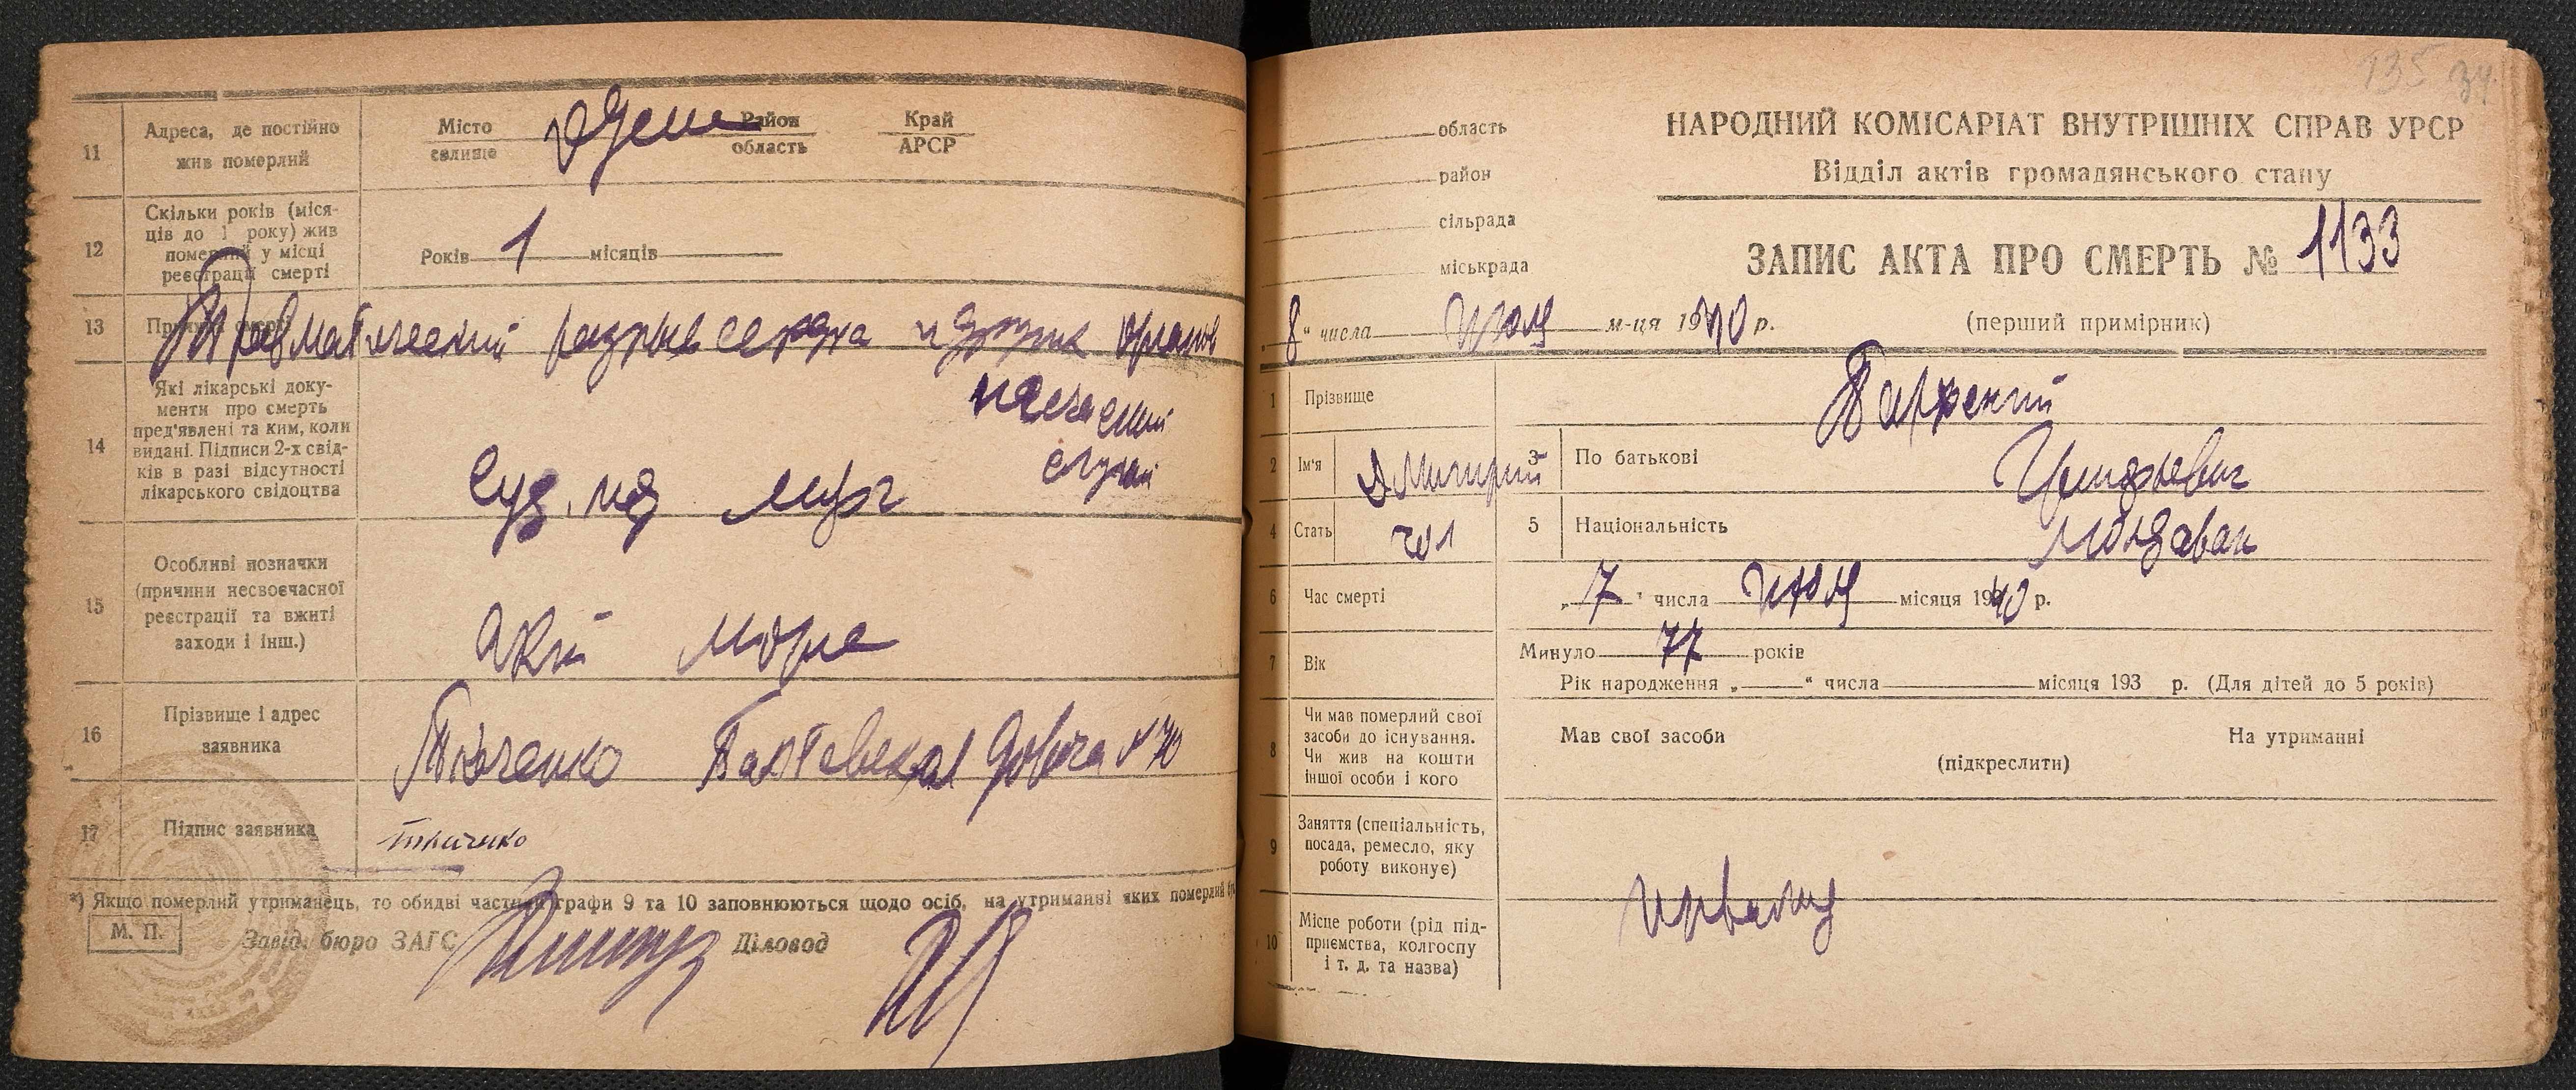 11 Адреса, де постійно жив померлий
Місто селище Одесса Район область Край АРСР
12 Скільки років (місяців до 1 року) жив померлий у місці реєстрації смерті
Років 1 місяців
13 Причина смерті
Травматический разрыв сердца и других органов
несчастный
случай
14 Які лікарські документи про смерть пред'явлені та ким, коли видані. Підписи 2-х свідків в разі відсутності лікарського свідоцтва
Суд. мед морг
15 Особливі позначки (причини несвоєчасної реєстрації та вжиті заходи і інш.)
Акт морга
16 Прізвище і адрес заявника
Ткаченко Балтовская дорога № 70
17 Підпис заявника
Ткаченко
*) Якщо померлий утриманець, то обидві частини графи 9 та 10 заповнюються щодо осіб, на утриманні яких померлий
М. П.
Завід. бюро ЗАГС Діловод
135 34
область
район
сільрада
міськрада
НАРОДНИЙ КОМІСАРІАТ ВНУТРІШНІХ СПРАВ УРСР
Відділ актів громадянського стану
ЗАПИС АКТА ПРО СМЕРТЬ № 1133
8 " числа июля м-ця 1940 р.
(перший примірник)
1 Прізвище
2 Ім'я Дмитрий
3 По батькові
4 Стать чол
5 Національність Молдаван
6 Час смерті „ 7 " числа июля місяця 1940 р.
7 Вік
Минуло 77 років
Рік народження „ “ числа місяця 193 р. (Для дітей до 5 років)
8 Чи мав померлий свої засоби до існування. Чи жив на кошти іншої особи і кого
Мав свої засоби На утриманні
(підкреслити)
9 Заняття (спеціальність, посада, ремесло, яку роботу виконує)
инвалид
10 Місце роботи (рід підприємства, колгоспу і т. д. та назва)